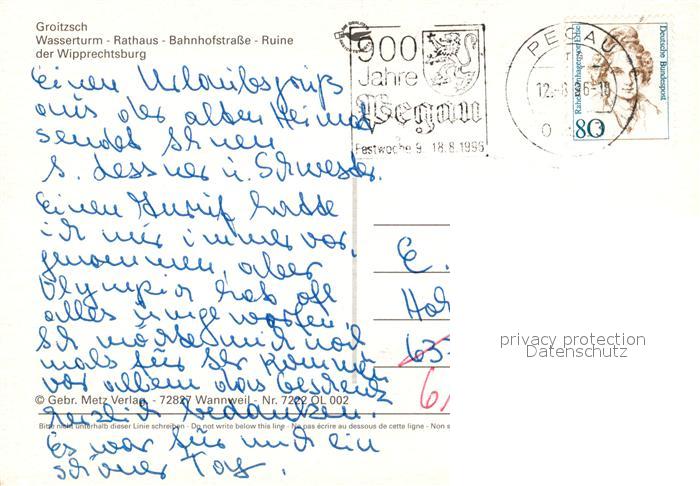 Groitzsch
Wasserturm - Rathaus - Bahnhofstraße - Ruine
der Wipprechtsburg
Einen Urlaubsgruß
aus der alten Heimat
sendet Ihnen
S. Dessner u. Schwester.
Einen Anruf hatte
ich mir immer vor-
genommen, aber
Olympia hat oft
alles umgeworfen.
Ich möchte mich noch
mals für Ihr Kommen
vor allem das Geschenk
herzlich bedanken.
Es war für mich ein
schöner Tag.
© Gebr. Metz Verlag - 72827 Wannweil - Nr. 7222 OL 002
Bitte nicht unterhalb dieser Linie schreiben - Do not write below this line - Ne pas écrire au dessous de cette ligne - Non s
900
Jahre
Pegau
Festwoche 9. 18.8.1996
PEGAU
12.-8.96-18
Rahel Varnhagen von Ense
Deutsche Bundespost
80
E.
63
6
privacy protection
Datenschutz